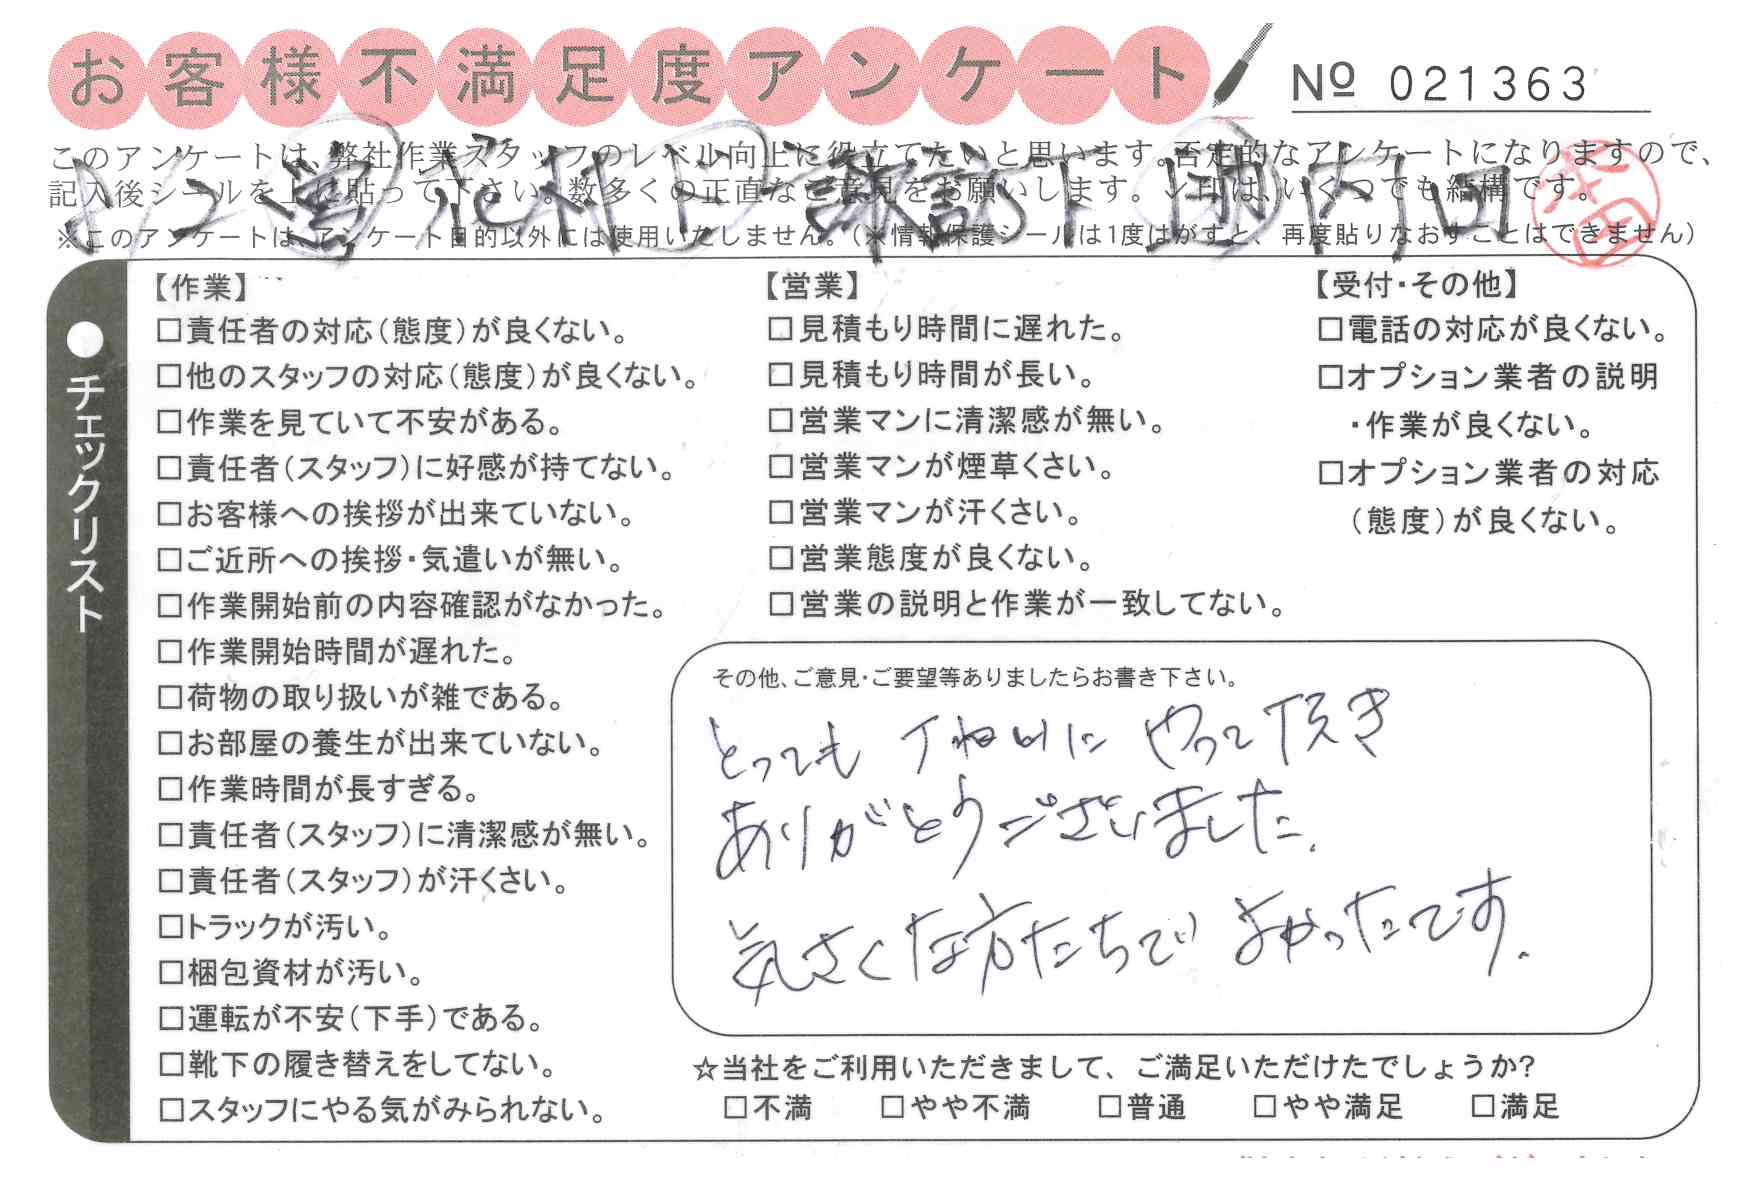 お客様不満足度アンケート
Nº 021363
このアンケートは、弊社作業スタッフのレベル向上に役立てたいと思います。否定的なアンケートになりますので、
記入後シールを上に貼って下さい。数多くの正直なご意見をお願いします。レ印は、いくつでも結構です。
※このアンケートは、アンケート目的以外には使用いたしません。(※情報保護シールは1度はがすと、再度貼りなおすことはできません)
●チェックリスト
【作業】
□責任者の対応(態度)が良くない。
□他のスタッフの対応(態度)が良くない。
□作業を見ていて不安がある。
□責任者(スタッフ)に好感が持てない。
□お客様への挨拶が出来ていない。
□ご近所への挨拶・気遣いが無い。
□作業開始前の内容確認がなかった。
□作業開始時間が遅れた。
□荷物の取り扱いが雑である。
□お部屋の養生が出来ていない。
□作業時間が長すぎる。
□責任者(スタッフ)に清潔感が無い。
□責任者(スタッフ)が汗くさい。
□トラックが汚い。
□梱包資材が汚い。
□運転が不安(下手)である。
□靴下の履き替えをしてない。
□スタッフにやる気がみられない。
【営業】
□見積もり時間に遅れた。
□見積もり時間が長い。
□営業マンに清潔感が無い。
□営業マンが煙草くさい。
□営業マンが汗くさい。
□営業態度が良くない。
□営業の説明と作業が一致してない。
【受付・その他】
□電話の対応が良くない。
□オプション業者の説明
・作業が良くない。
□オプション業者の対応
(態度)が良くない。
その他、ご意見・ご要望等ありましたらお書き下さい。
とっても丁ねいに やって頂き
ありがとうございました.
気さくな方たちで よかったです.
☆当社をご利用いただきまして、ご満足いただけたでしょうか?
□不満 □やや不満 □普通 □やや満足 □満足